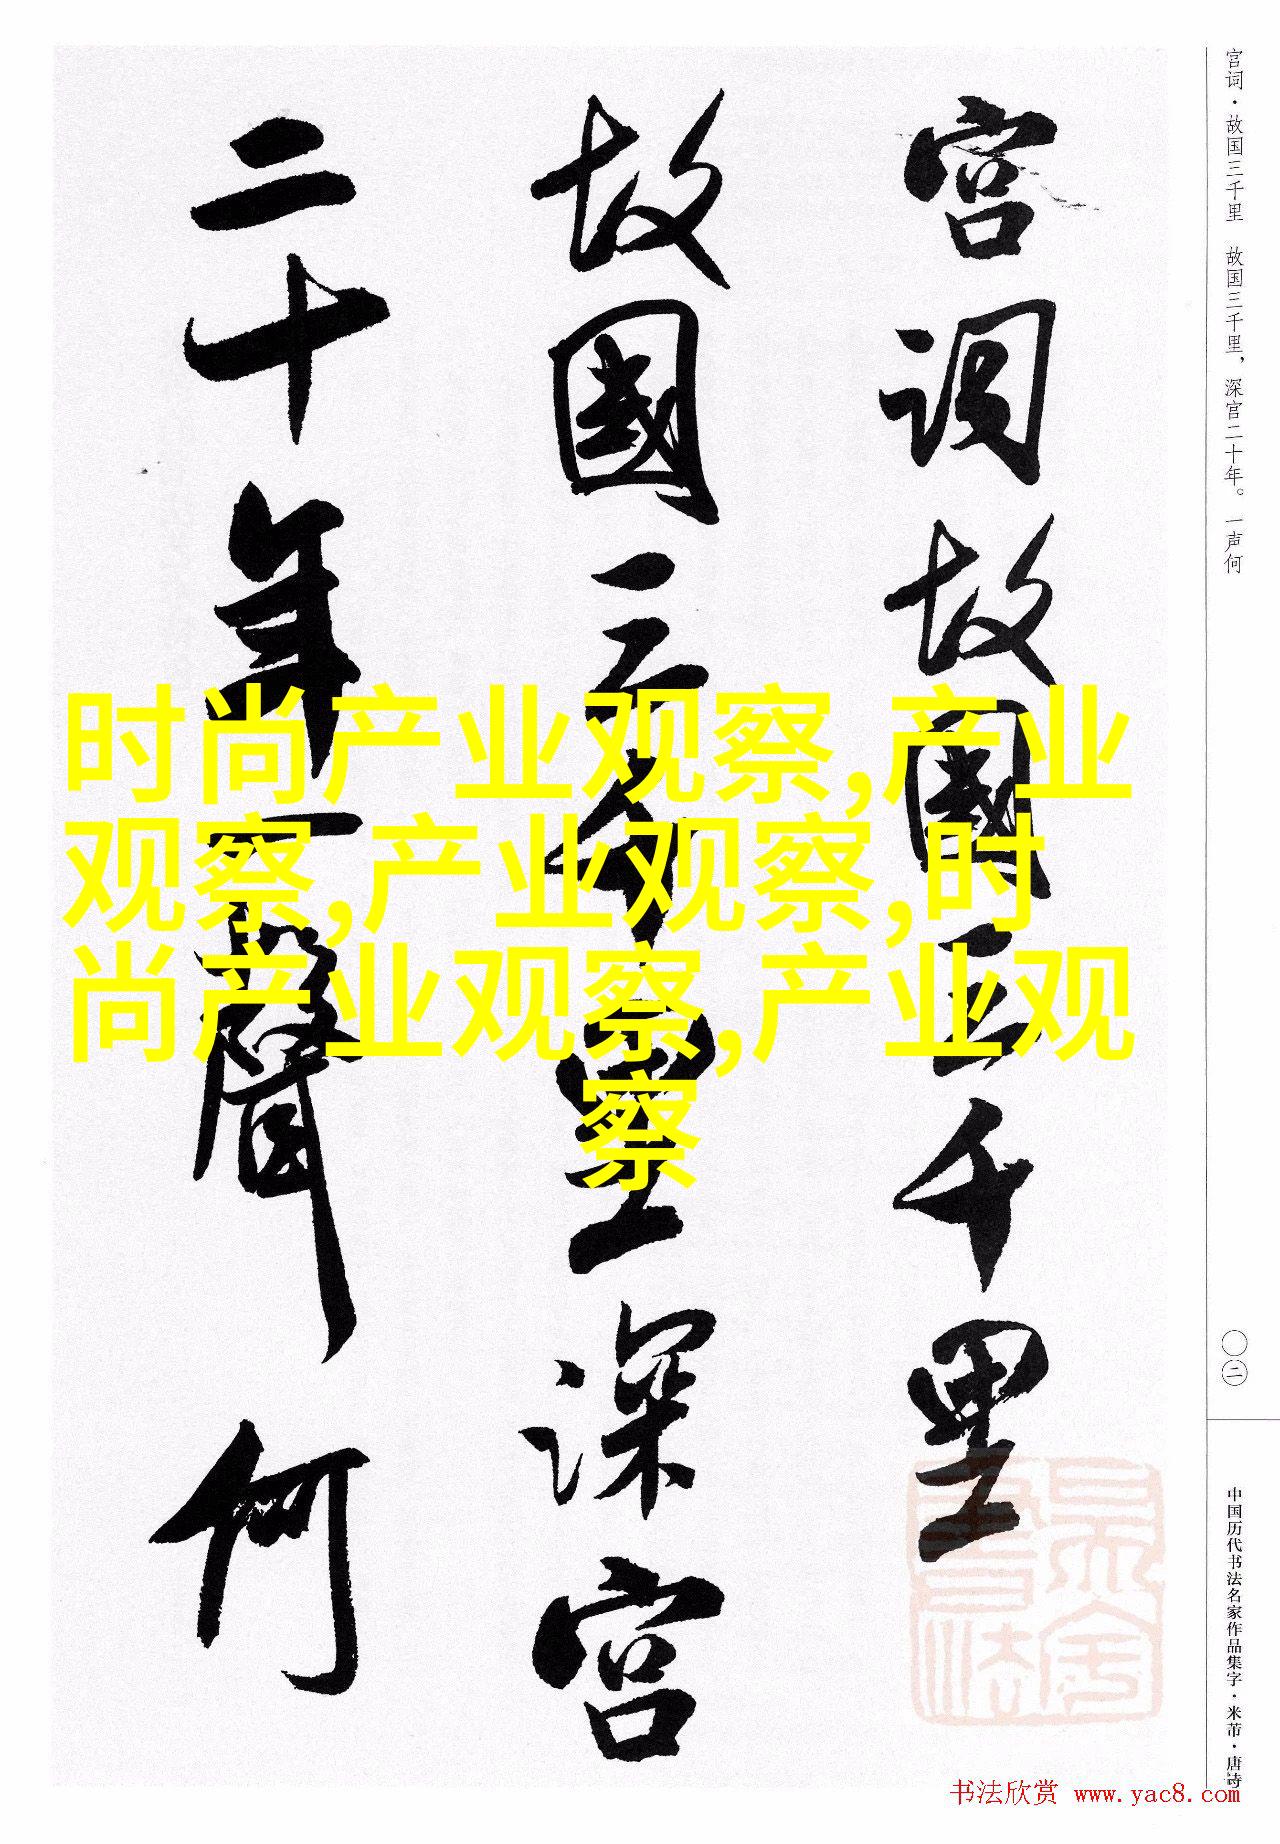 宫词·故国三千里 故国三千里，深宫二十年。一声何
宫词故國三千里
故國三千里深宫
二十年一聲何
时尚产业观察,产业
观察,产业观察,时
尚产业观察,产业观
察
〇二
中国历代书法名家作品集字·米芾·唐诗
书法欣赏 www.yac8.com